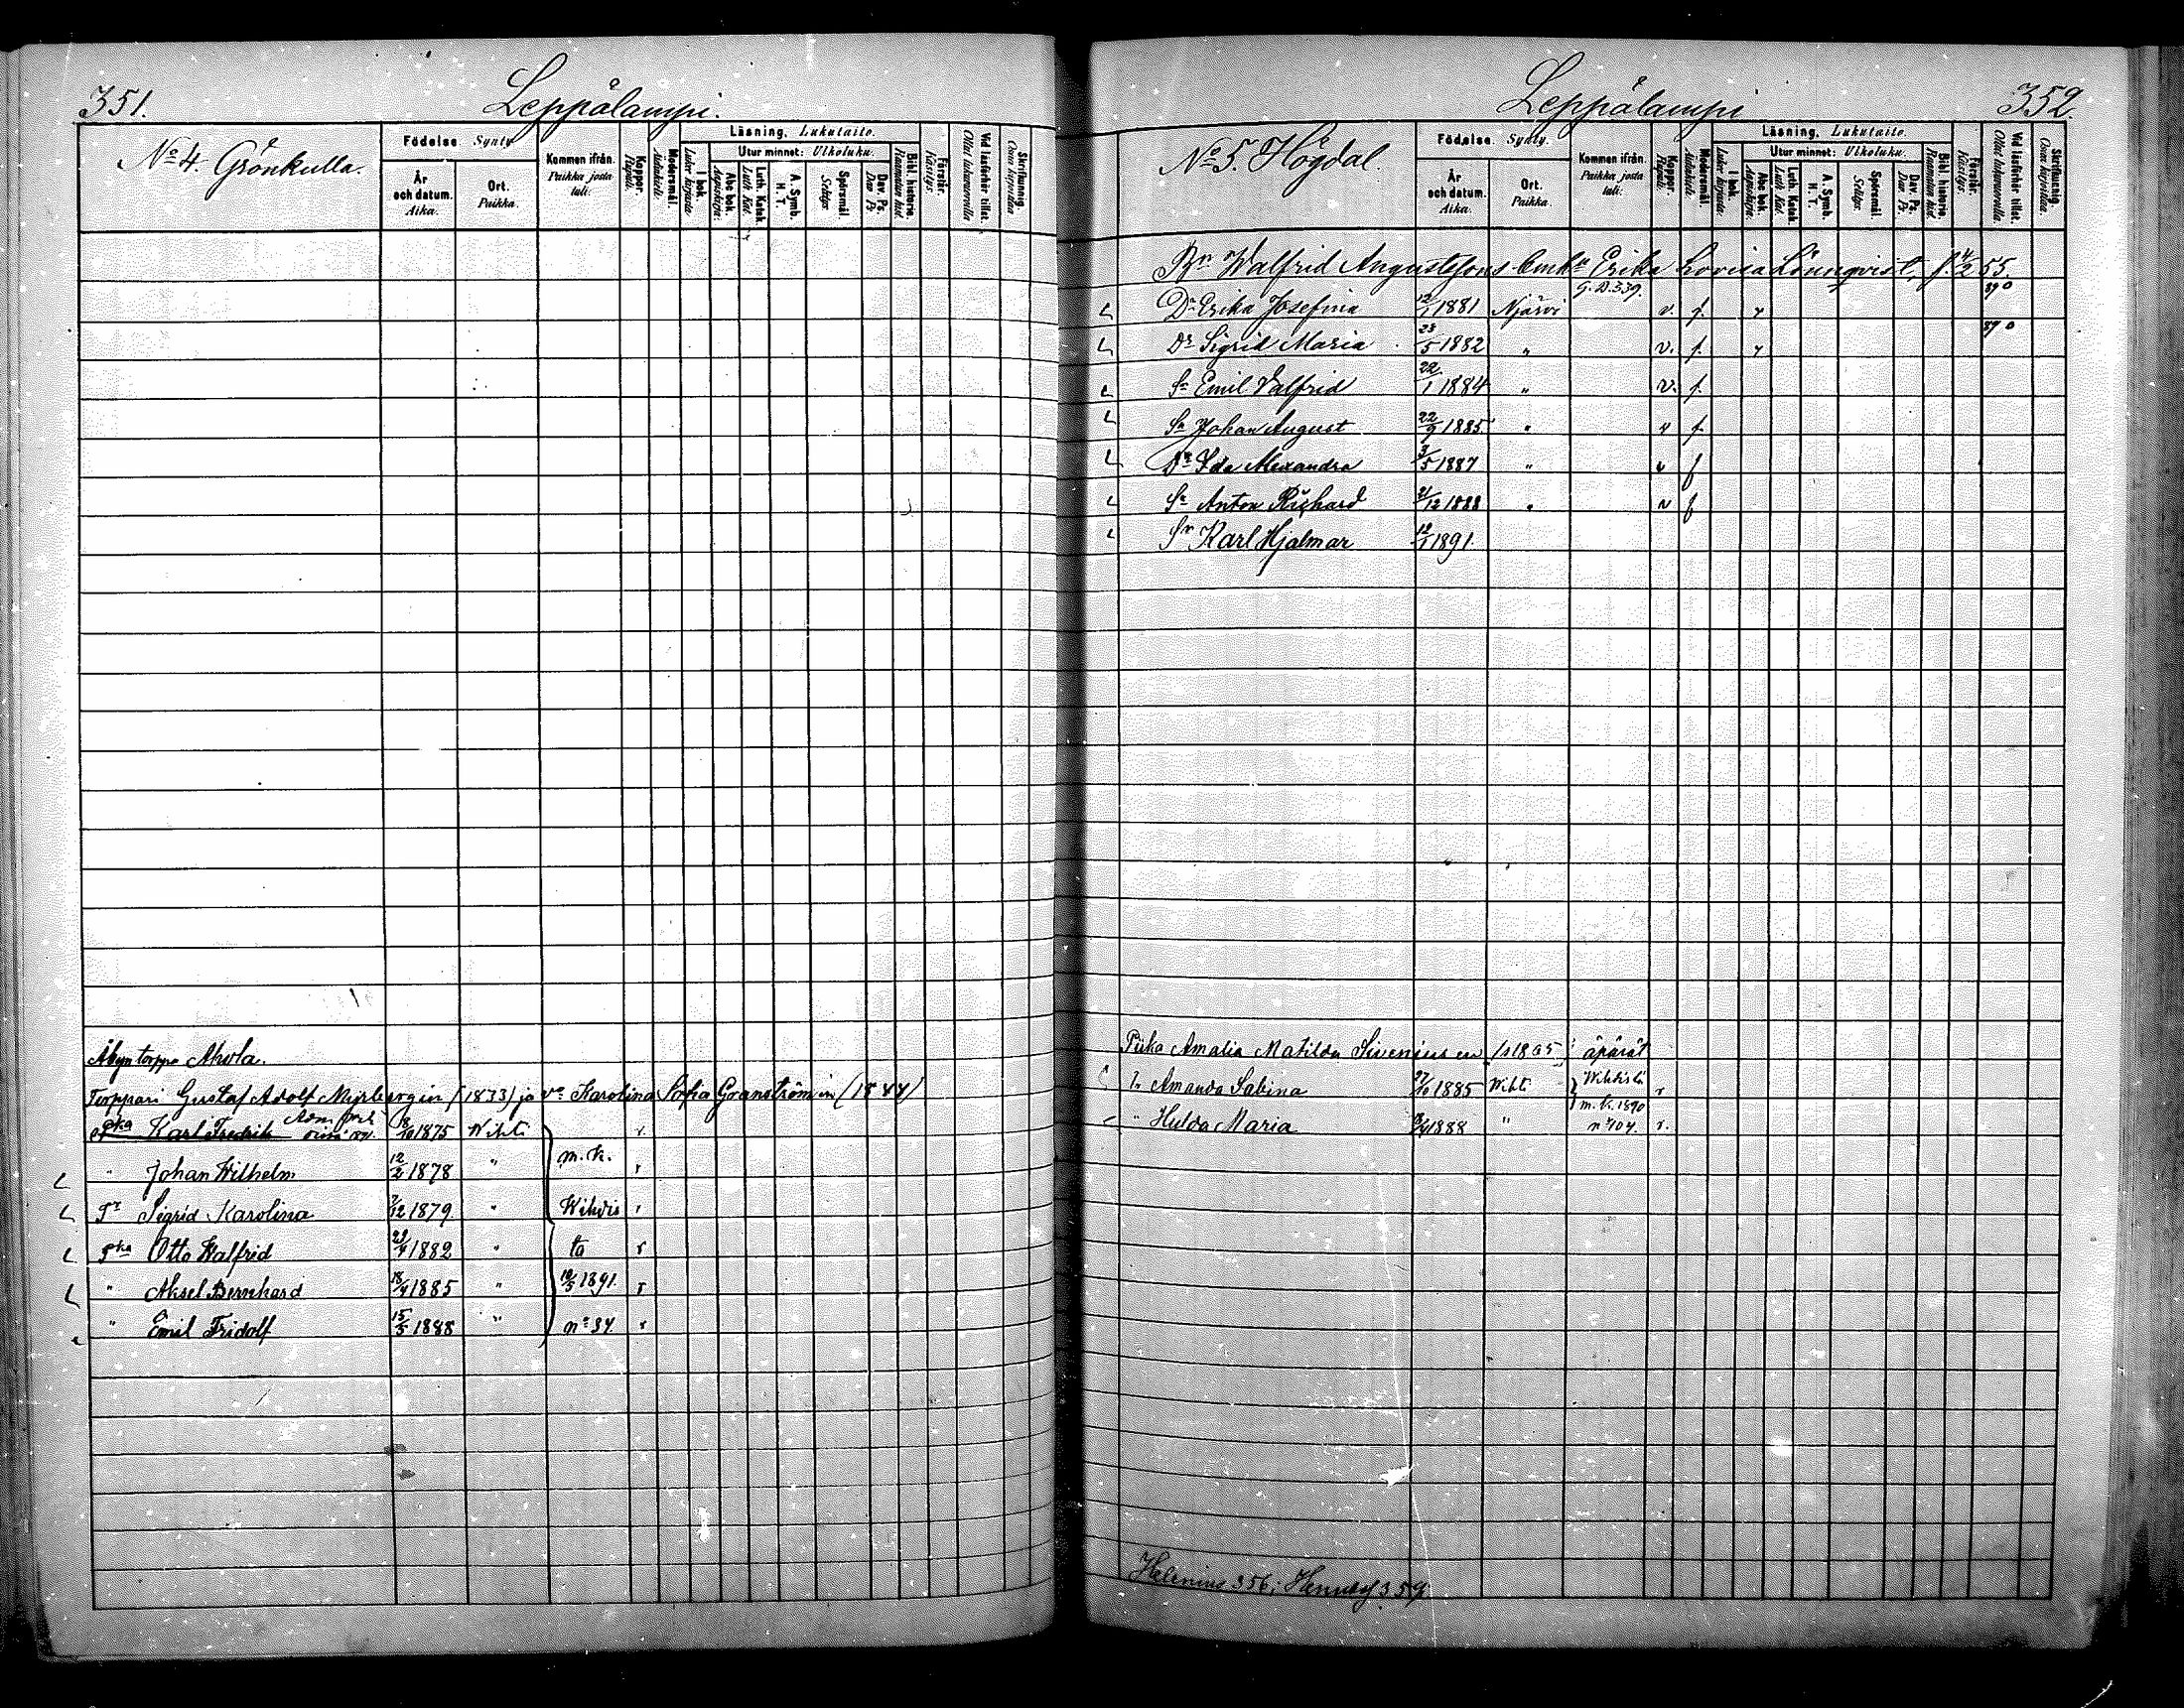 351.
Leppälampi.
No 4. Grönkulla.
Födelse. Synty.
År och datum. Aika.
Ort. Paikka.
Kommen ifrån. Paikka josta tuli.
Koppor. Rupuli.
Modersmål. Äidinkieli.
Läsning. Lukutaito.
I bok. Lukee kirjasta.
Utur minnet: Ulkoluku.
Abc bok. Aapiskirja.
Luth. Katek. Luth Kat.
A. Symb. H. T.
Spörsmål Selitys.
Dav. Ps. Dav Ps
Bibl. historia. Raamatun hist.
Förstår. Käsitys.
Vid läsförhör tillst. Ollut lukuvuorolla
Skrifkunnig. Osaa kirjoittaa
Åbyn torppa Ahola.
Torppari Gustaf Adolf Myrbergin (1833) ja vo Karolina Sofia Granströmin (1844)
Pka Karl Fredrik 18/10 1875 Wihti r.
" Johan Wilhelm 12/2 1878 " m. k. r
Tr Sigrid Karolina 7/12 1879 " Wihdis r
Pka Otto Walfrid 29/4 1882 " tä r
" Aksel Bernhard 18/4 1885 " 10/5 1891. r
" Emil Fridolf 15/5 1888 " no 34. r
Leppälampi
352.
No 5. Högdal.
Födelse. Synty.
År och datum. Aika.
Ort. Paikka.
Kommen ifrån. Paikka josta tuli.
Koppor. Rupuli.
Modersmål. Äidinkieli.
Läsning. Lukutaito.
I bok. Lukee kirjasta.
Utur minnet: Ulkoluku.
Abc bok. Aapiskirja.
Luth. Katek. Luth Kat.
A. Symb. H. T.
Spörsmål Selitys.
Dav. Ps. Dav Ps
Bibl. historia. Raamatun hist.
Förstår. Käsitys.
Vid läsförhör tillst. Ollut lukuvuorolla
Skrifkunnig. Osaa kirjoittaa
Bn Walfrid Augustsfons Enka Erika Lovisa Lönnqvist, f. 4/2 55.
G. B. 339.
Dr Erika Josefina 12/1 1881 Njärvi v. f. v 89 0
Dr Sigrid Maria 23/5 1882 " v. f. v 89 0
Sn Emil Valfrid 22/1 1884 " v. f.
Sn Johan August 22/9 1885 " v f.
Dr Ida Alexandra 3/5 1887 " v f
Sn Anton Richard 21/12 1888 " v f
Sn Karl Hjalmar 12/1 1891.
Piika Amalia Matilda Siveniusen 1865 äpärät
Tr Amanda Sabina 27/10 1885 Wihti Wihdistä r
m. k. 1890
" Hulda Maria 1888 " no 104. r.
Helenius 356; 359